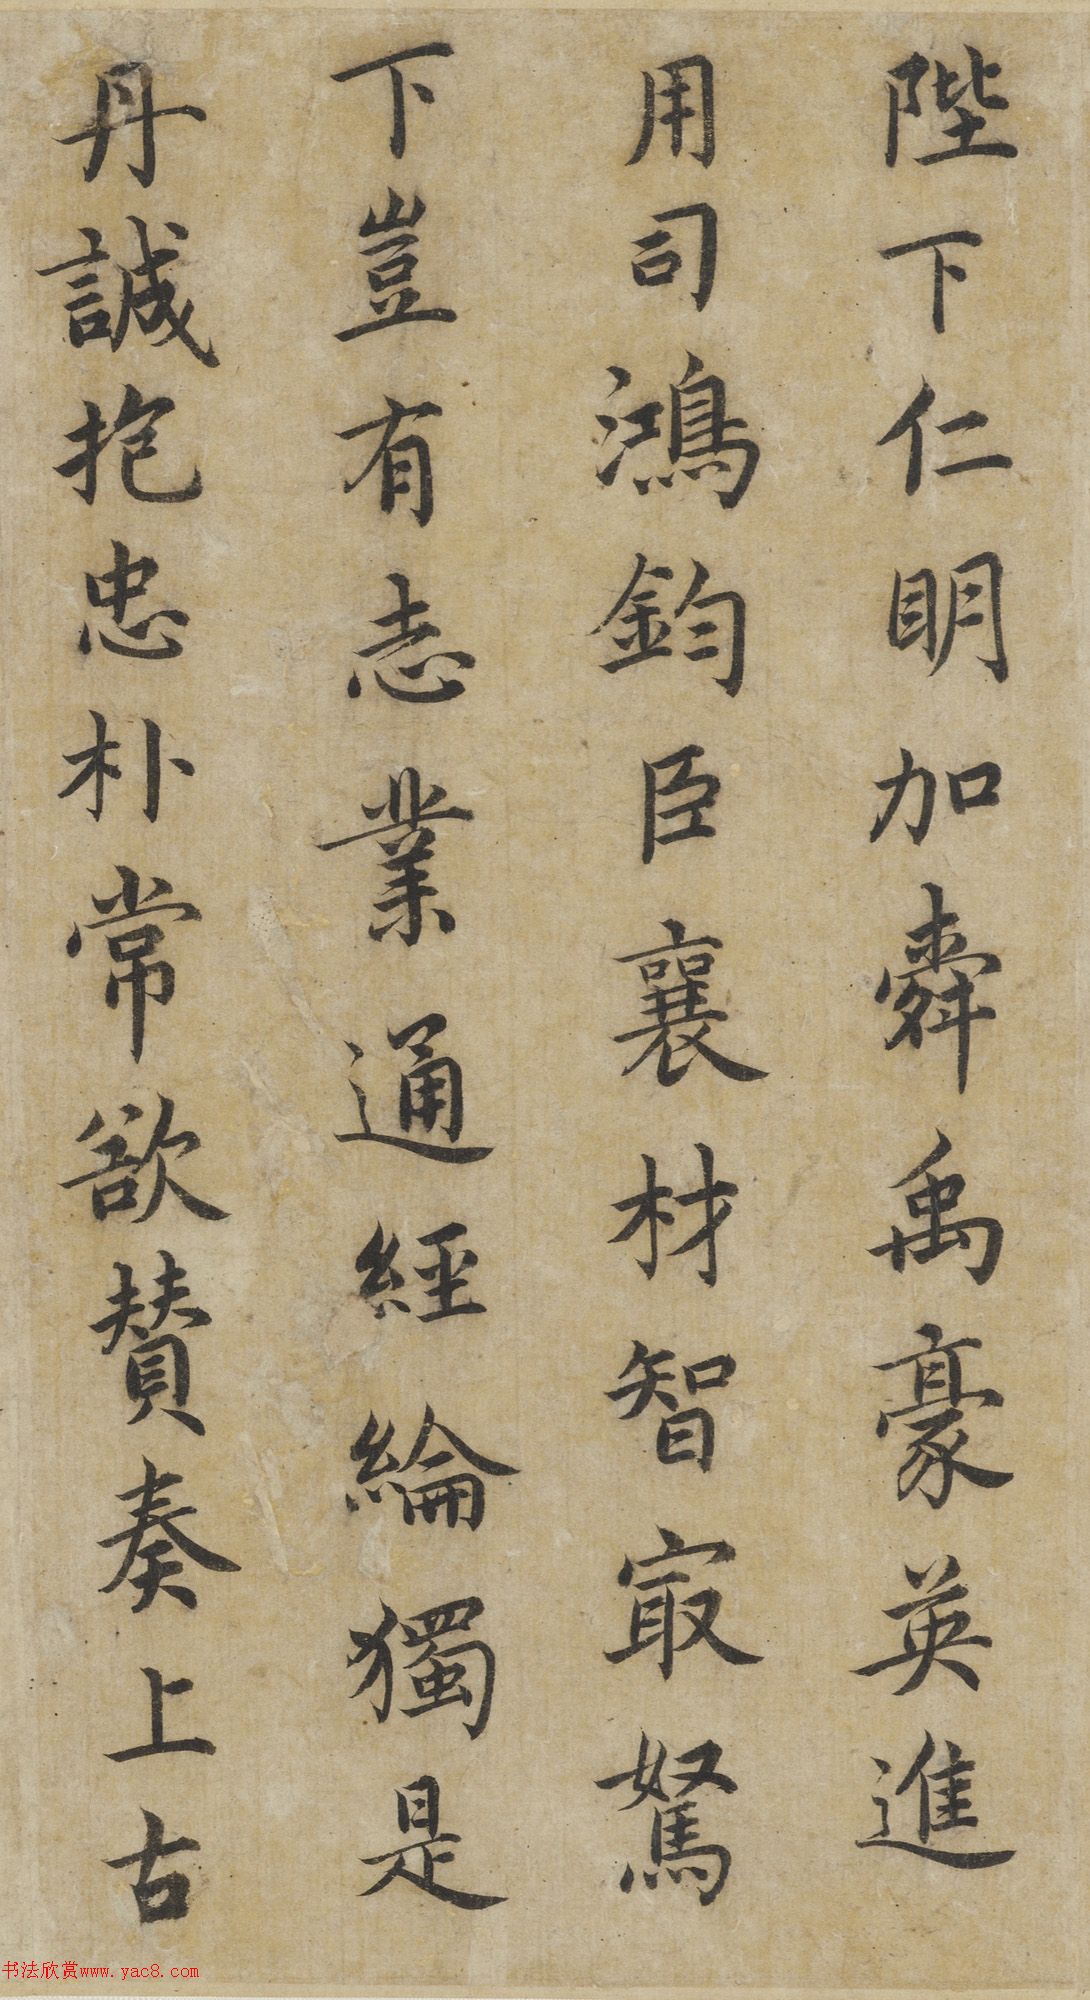 陛下仁明加舜禹豪英進
用司鴻鈞臣襄材智冣駑
下豈有志業通經綸獨是
丹誠抱忠朴常欲賛奏上古
书法欣赏www.yac8.com